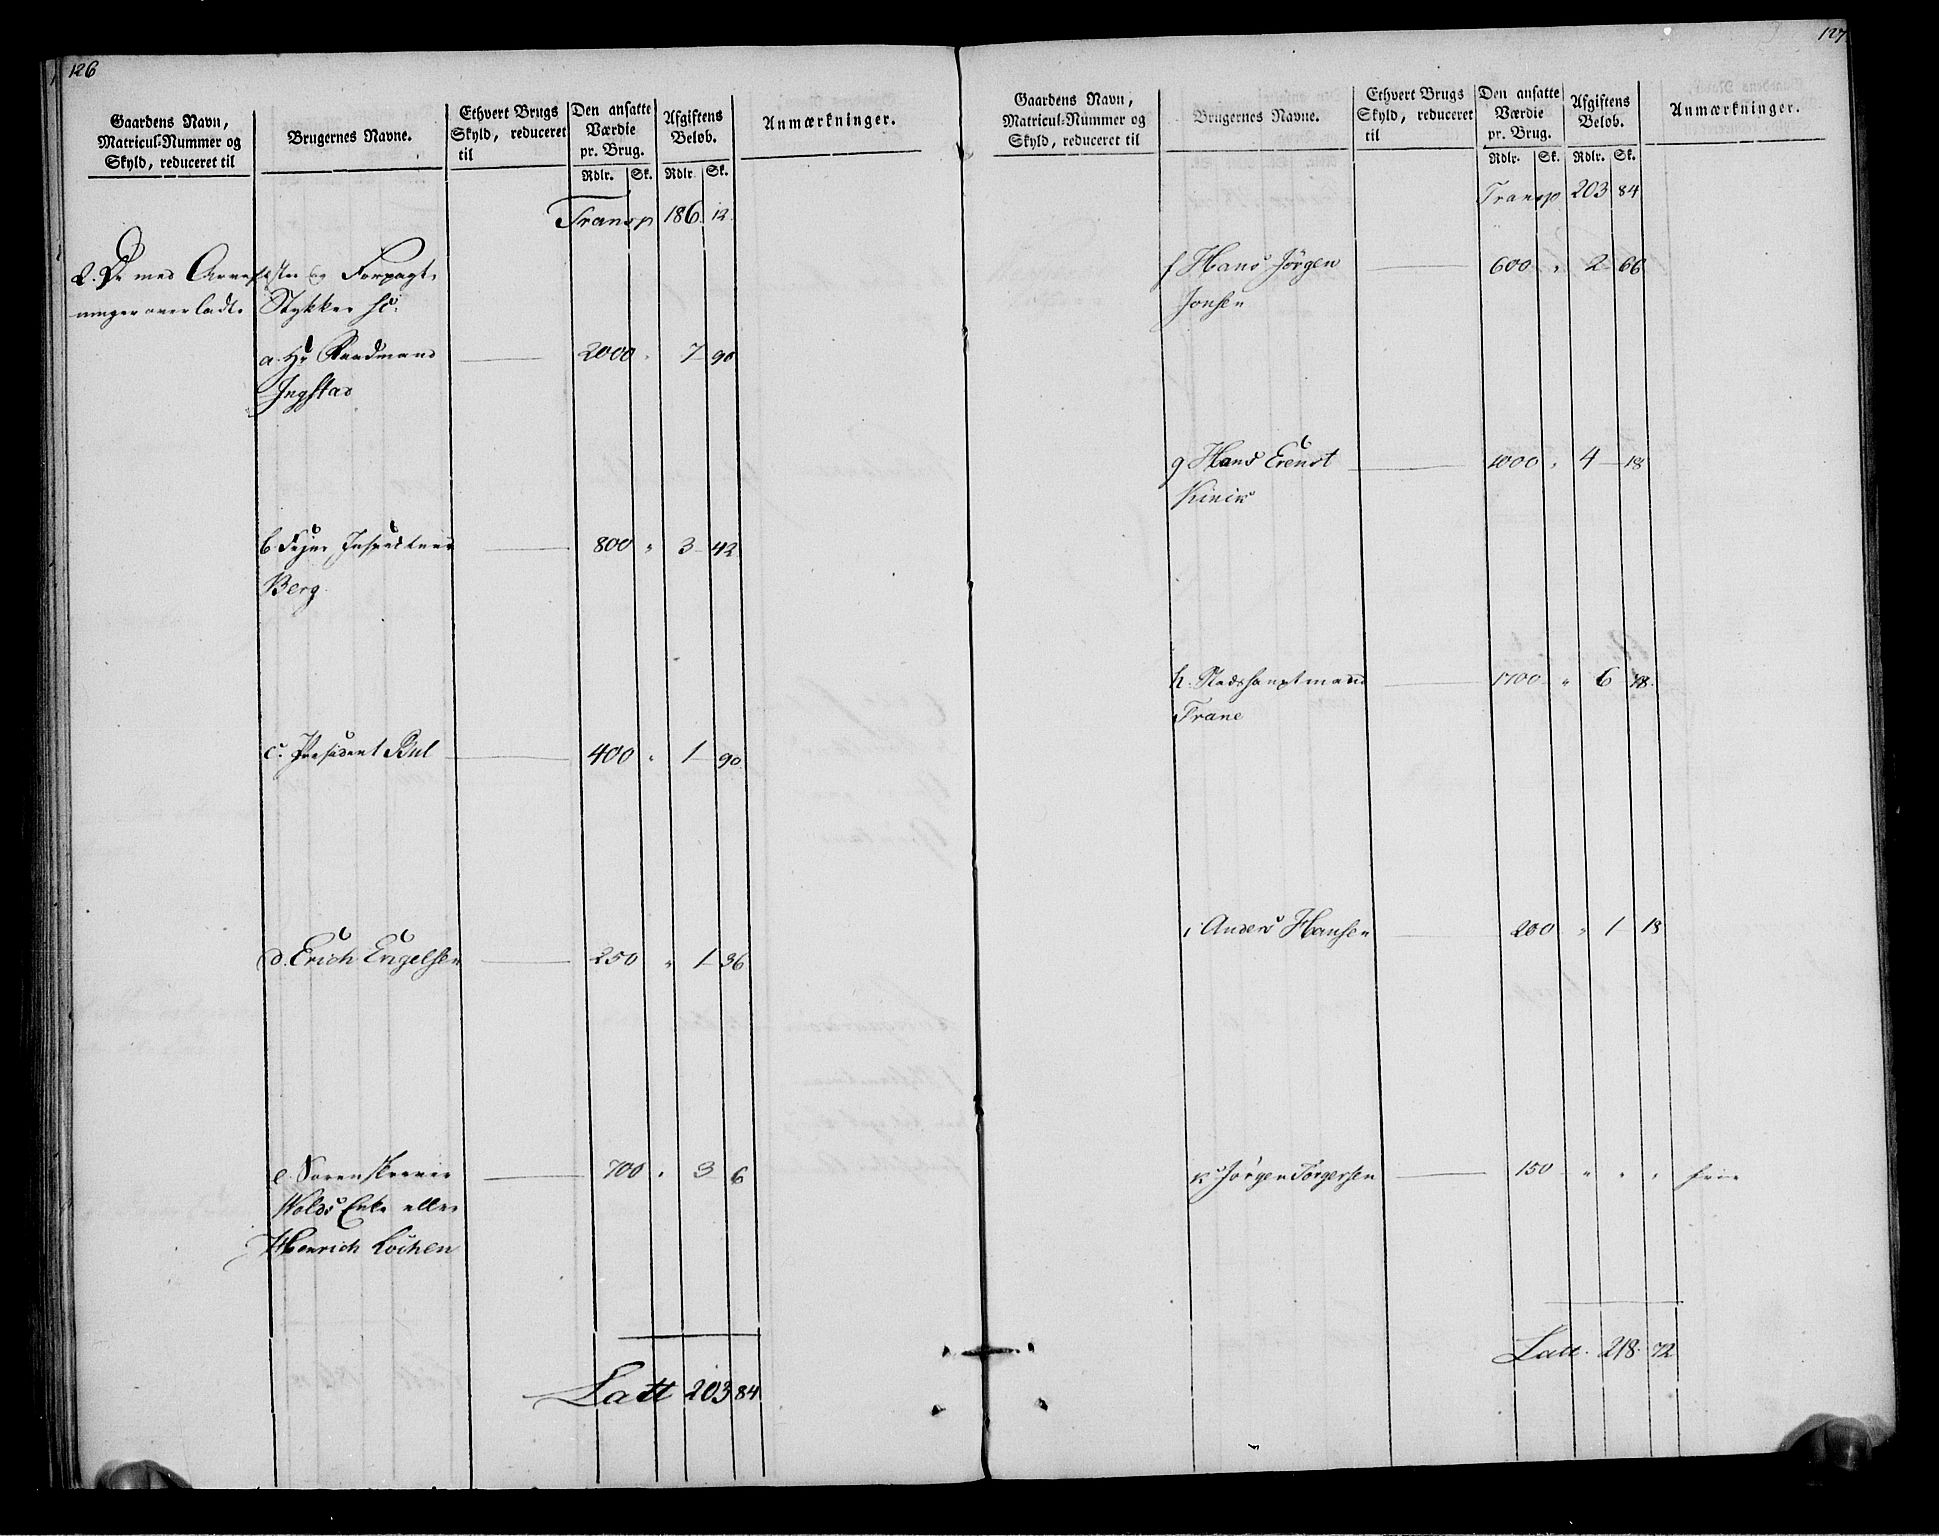 126
Gaardens Navn, Matricul-Nummer og Skyld, reduceret til
Brugernes Navne.
Ethvert Brugs Skyld, reduceret til
Den ansatte Værdie pr. Brug.
Afgiftens Beløb.
Anmærkninger.
Rdlr. Sk. Rdlr. Sk.
Transp 186 12
2. De med Arvefæster og Forpagt-
ninger overladte Stykker
a. Hr Raadmand 2000 " 7 90
Ingstad
b. Fejer Inspecteur 800 " 3 42
Berg
c. Præsident Bul 400 " 1 90
d. Erich Engelsen 250 " 1 36
e. Sorenskriver 700 " 3 6
Wolds Enke eller
Henrich Lochen
Latt 203 84
127
Gaardens Navn, Matricul-Nummer og Skyld, reduceret til
Brugernes Navne.
Ethvert Brugs Skyld, reduceret til
Den ansatte Værdie pr. Brug.
Afgiftens Beløb.
Anmærkninger.
Rdlr. Sk. Rdlr. Sk.
Transp 203 84
f Hans Jörgen 600 " 2 66
Jonsen
g Hans Erenst 1000 " 4 18
h. Stadshauptmand 1700 " 6 78
Trane
i Anders Hansen 200 " 1 18
k Jörgen Törgersen 150 " " " frie
Latt. 218 72